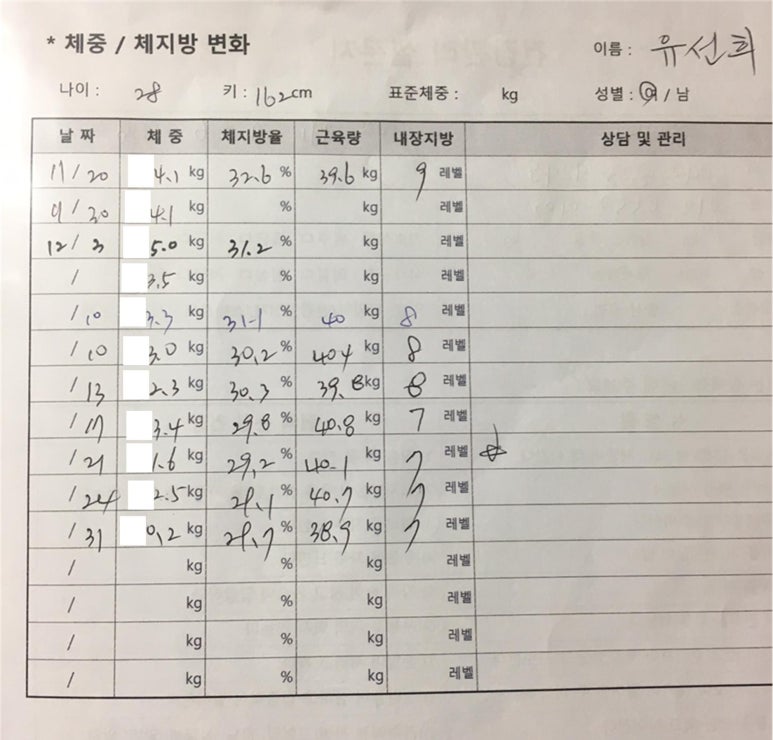 * 체중 / 체지방 변화 이름 : 유선희
나이 : 28 키 : 162cm 표준체중 : kg 성별 : 여 / 남
날 짜 체 중 체지방율 근육량 내장지방 상담 및 관리
11 / 20 4.1 kg 32.6 % 39.6 kg 9 레벨
/ 30 4.1 kg % kg 레벨
12 / 3 5.0 kg 31.2 % kg 레벨
/ 3.5 kg % kg 레벨
/ 10 3.3 kg 31.1 % 40 kg 8 레벨
/ 10 3.0 kg 30.2 % 40.4 kg 8 레벨
/ 13 2.3 kg 30.3 % 39.8 kg 8 레벨
/ 17 3.4 kg 29.8 % 40.8 kg 7 레벨
/ 21 1.6 kg 29.2 % 40.1 kg 7 레벨
/ 24 2.5 kg 29.1 % 40.7 kg 7 레벨
/ 31 0.2 kg 29.7 % 38.9 kg 7 레벨
/ kg % kg 레벨
/ kg % kg 레벨
/ kg % kg 레벨
/ kg % kg 레벨